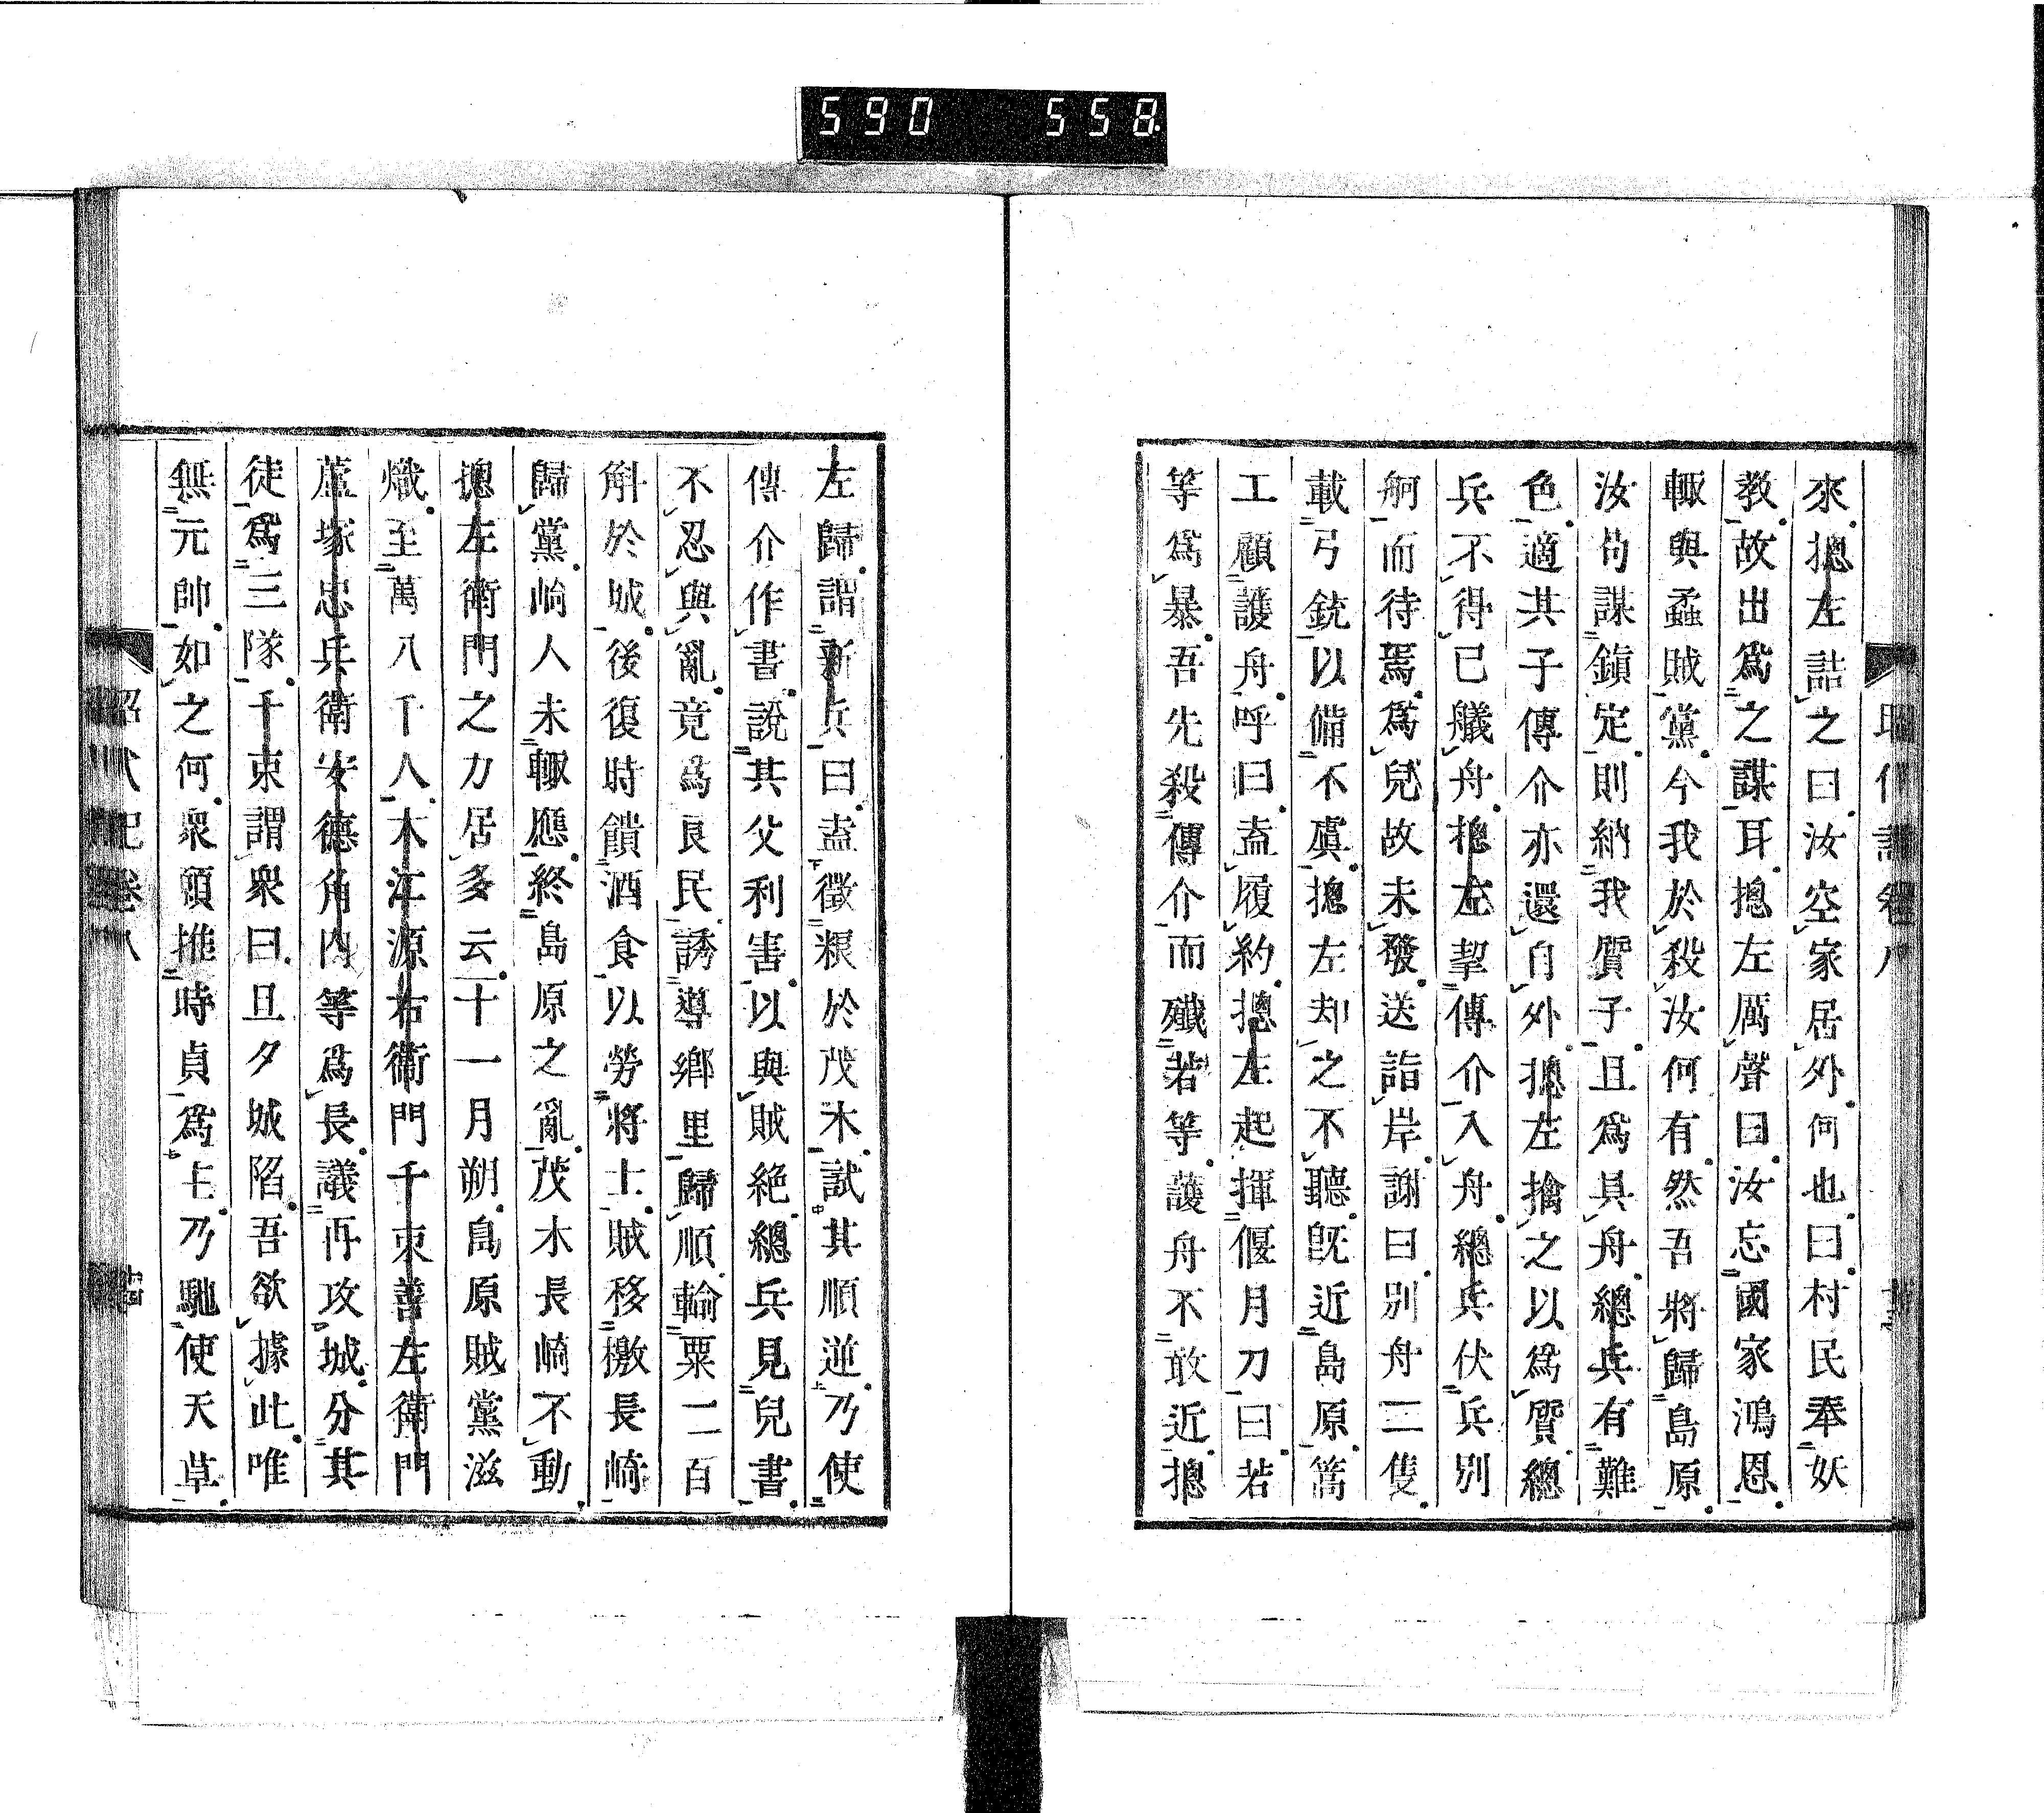 590 558
來摠左詰之曰汝空家居外何也曰村民奉妖
教故出爲之謀耳摠左厲聲曰汝忘國家鴻恩
輙與蟊賊黨今我於殺汝何有然吾將歸島原
汝苟謀鎭定則納我質子且爲具舟總兵有難
色適其子傳介亦還自外摠左擒之以爲質總
兵不得已艤舟摠左挈傳介入舟總兵伏兵別
舸而待焉爲兒故未發送詣岸謝曰別舟二隻
載弓銃以備不虞摠左却之不聽旣近島原篙
工顧護舟呼曰盍履約摠左起揮偃月刀曰若
等爲暴吾先殺傳介而殲若等護舟不敢近摠
左歸謂新兵曰盍徵粮於茂木試其順逆乃使
傳介作書說其父利害以與賊絶總兵見兒書
不忍與亂竟爲良民誘導鄕里歸順輸粟二百
斛於城後復時饋酒食以勞將士賊移檄長崎
歸黨崎人未輙應終島原之亂茂木長崎不動
摠左衛門之力居多云十一月朔島原賊黨滋
熾至萬八千人木江源右衛門千束善左衛門
蘆塚忠兵衛安德角内等爲長議再攻城分其
徒爲三隊千束謂衆曰旦夕城陷吾欲據此唯
無元帥如之何衆願推時貞爲主乃馳使天草
昭代記卷八